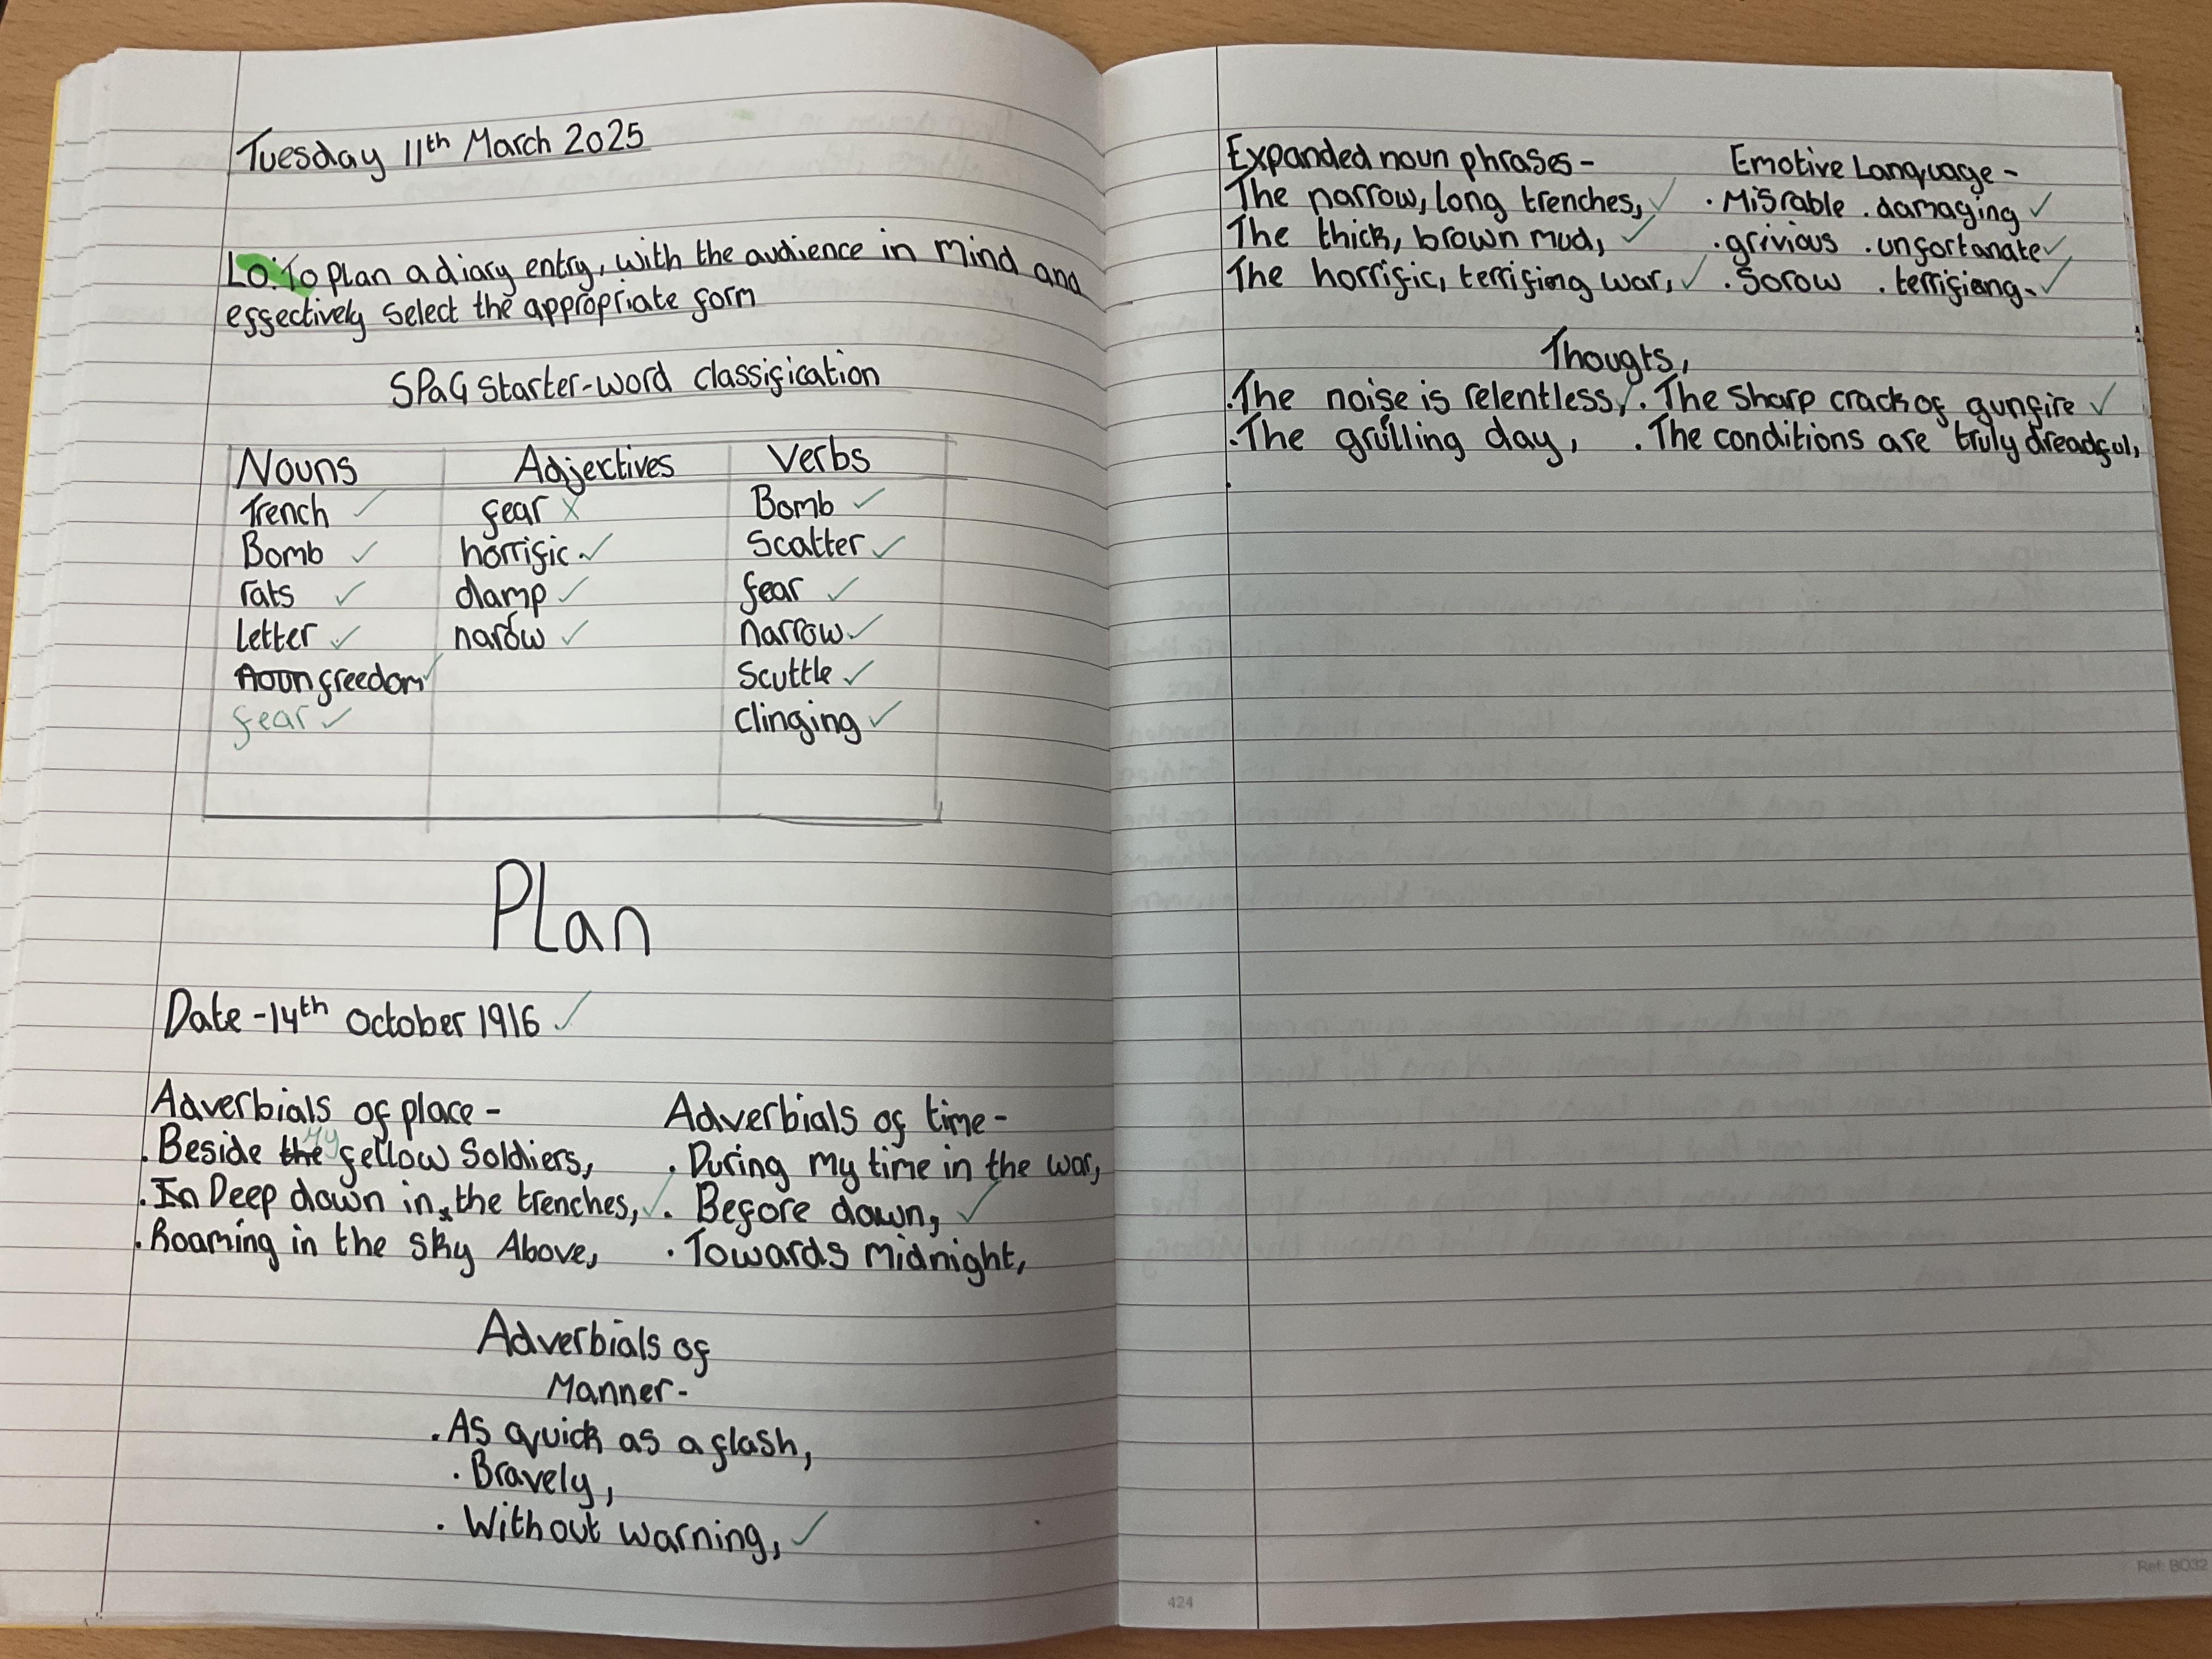 Tuesday 11th March 2025
LO: To plan a diary entry, with the audience in mind and
effectively select the appropriate form
SPaG starter-word classification
Nouns Adjectives Verbs
Trench ✓ fear x Bomb ✓
Bomb ✓ horrific ✓ Scatter ✓
rats ✓ damp ✓ fear ✓
Letter ✓ narow ✓ narrow ✓
freedom ✓ Scuttle ✓
fear ✓ Clinging ✓
Plan
Date - 14th October 1916 ✓
Adverbials of place - Adverbials of time -
. Beside the My fellow Soldiers, . During my time in the war,
. In Deep down in the trenches, ✓ . Before dawn, ✓
. Roaming in the sky Above, . Towards midnight,
Adverbials of
Manner -
. As quick as a flash,
. Bravely,
. Without warning, ✓
Expanded noun phrases - Emotive Language -
The narrow, long trenches, ✓ . Misrable . damaging ✓
The thick, brown mud, ✓ . grivious . unfortanate ✓
The horrific, terrifing war, ✓ . Sorow . terrifieng. ✓
Thougts,
. The noise is relentless, ✓ . The sharp crack of gunfire ✓
. The grulling day, . The conditions are truly dreadful,
424
Ref: BO32